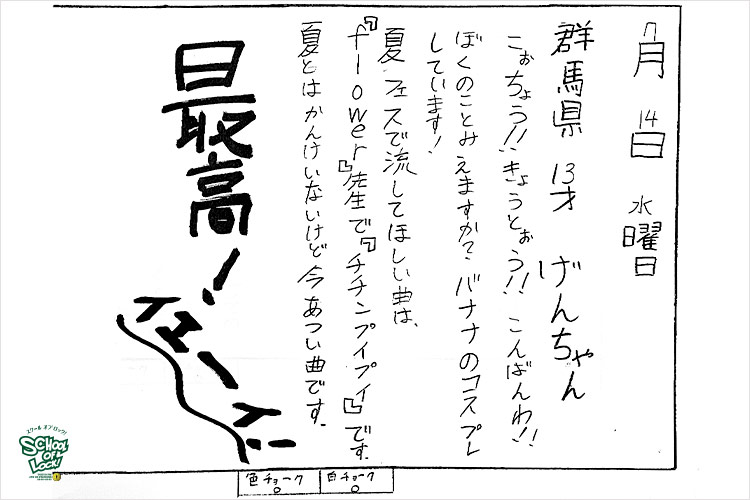 7月 14日 水曜日
群馬県 13才 げんちゃん
こぉちょう!!きょうとぉう!!こんばんわ!!
ぼくのことみえますか?バナナのコスプレ
しています!
夏フェスで流してほしい曲は、
『flower』先生で『チチンプイプイ』です.
夏とはかんけいないけど今あつい曲です.
最高!
イェーイ
色チョーク 白チョーク
スクールオブロック!
SCHOOL OF LOCK!